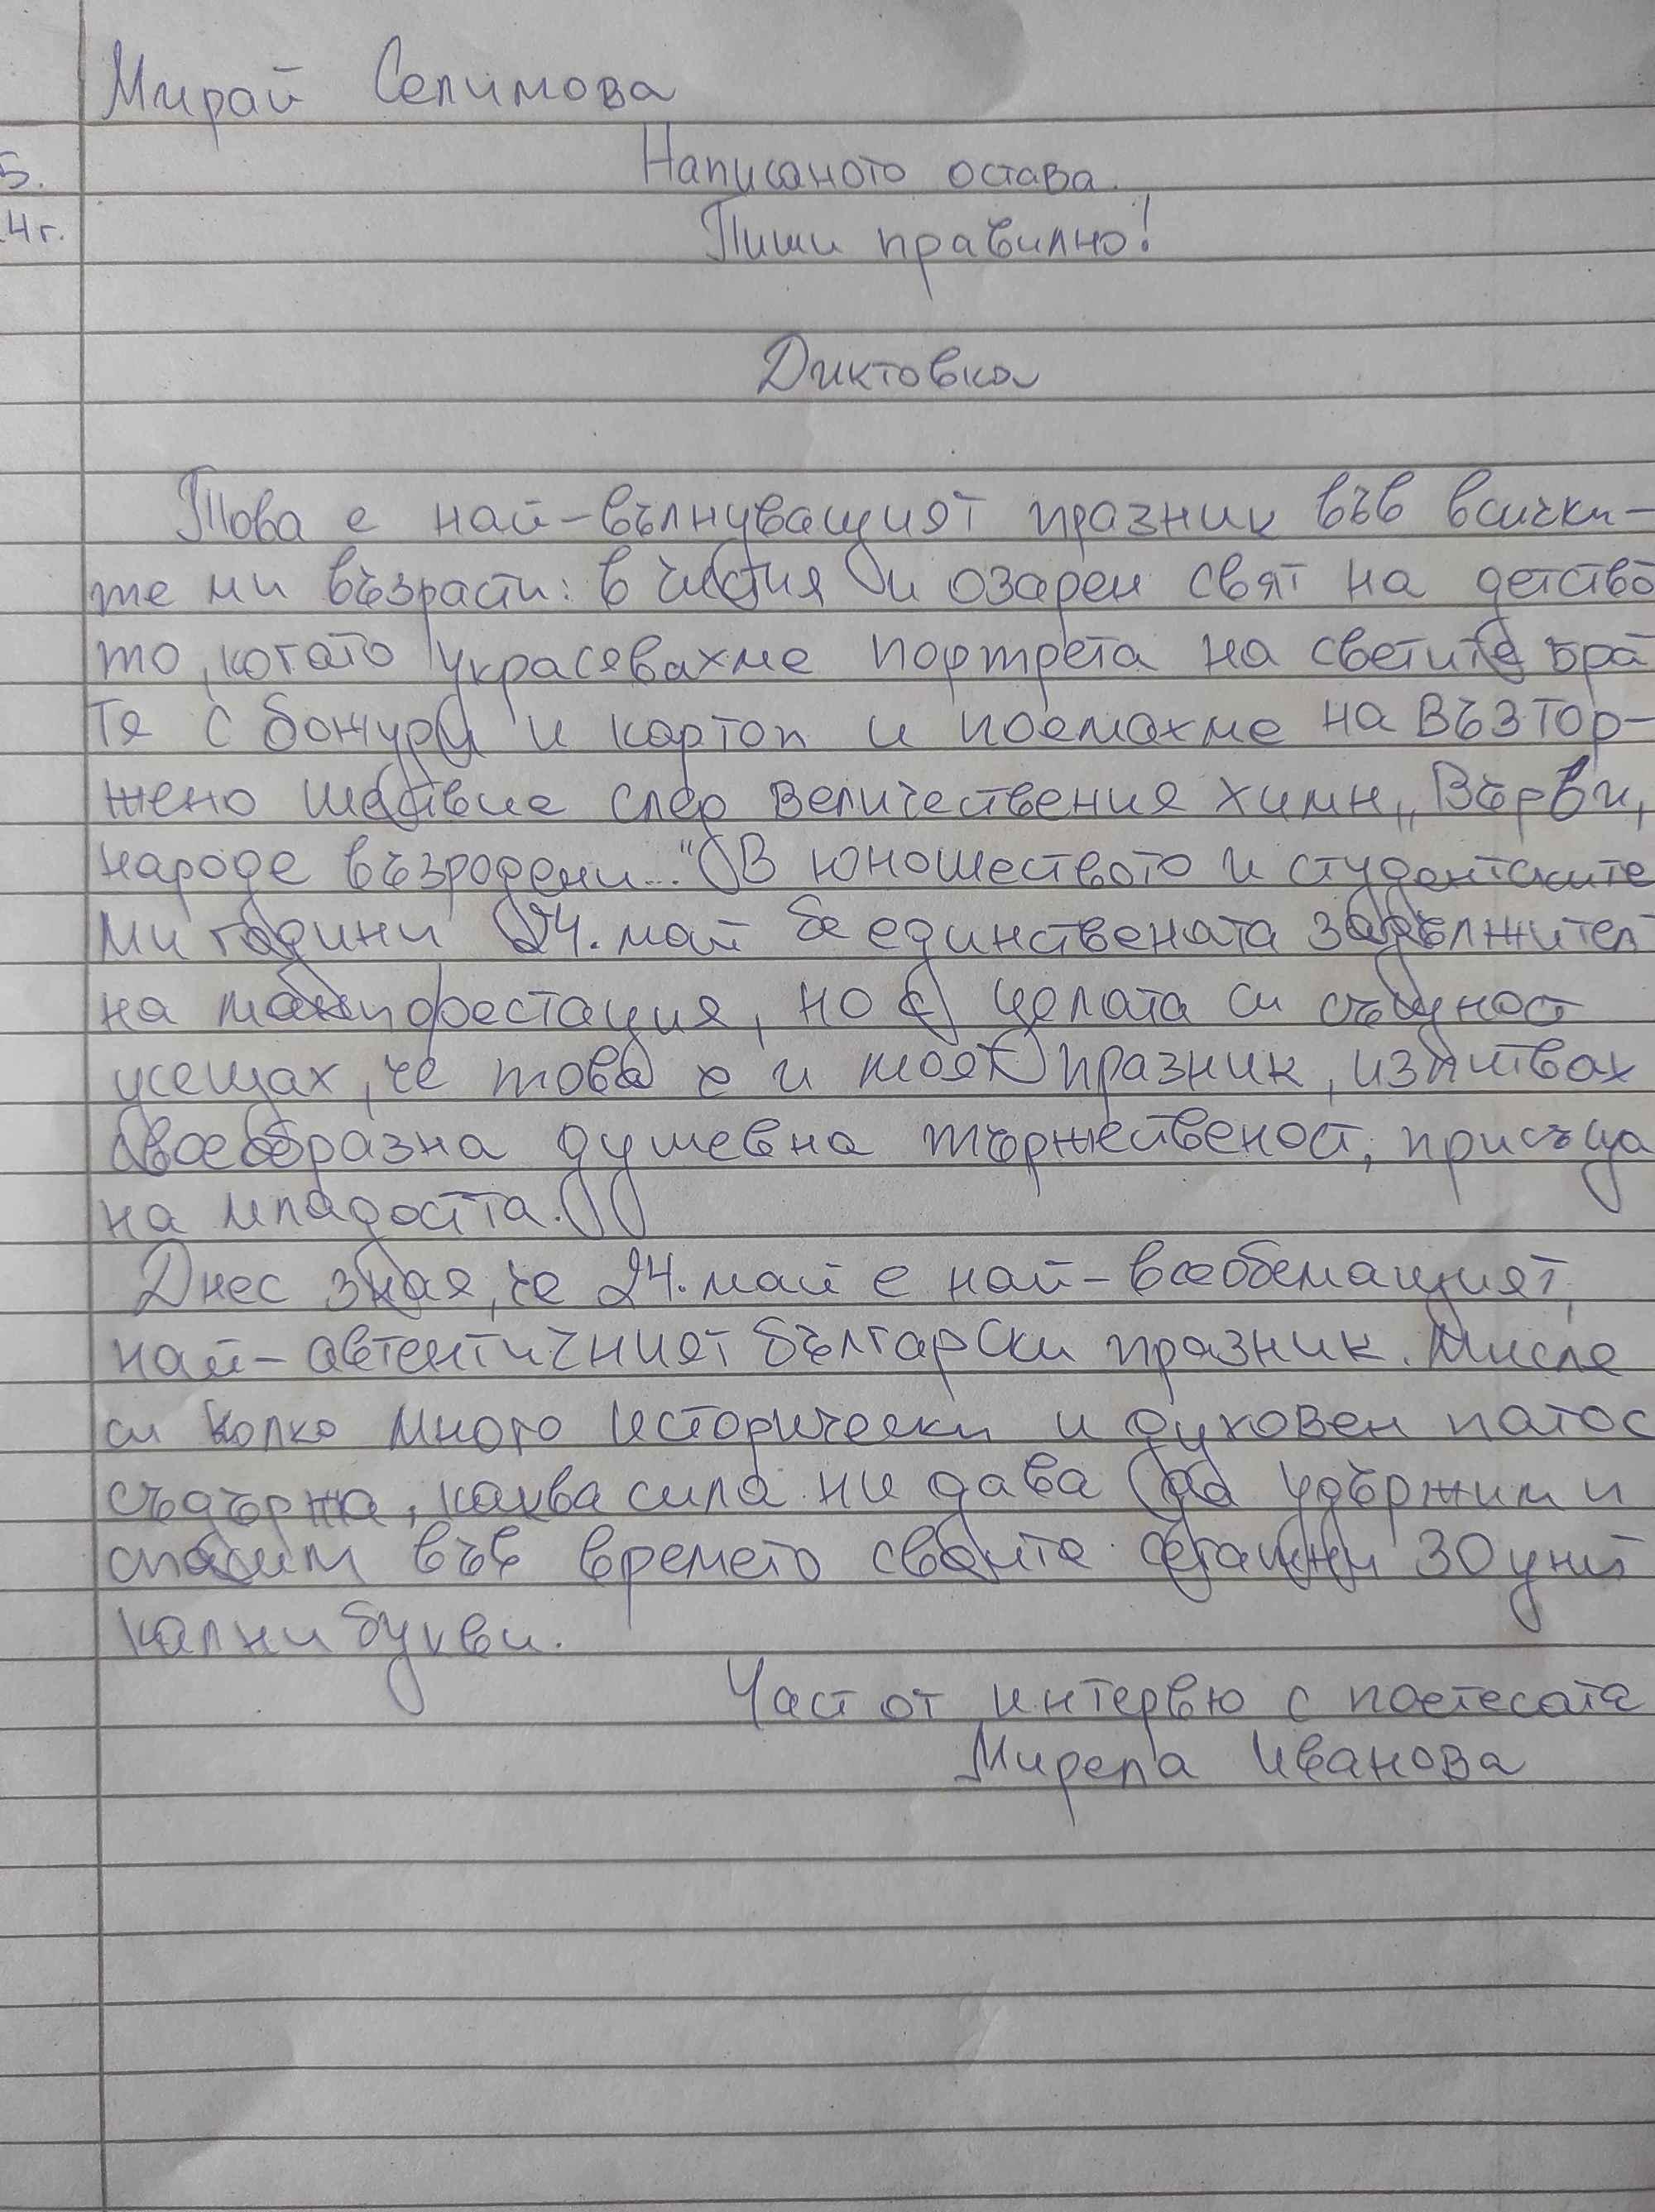 Мирай Селимова
Написаното остава.
5.
Пиши правилно!
4г.
Диктовка
Това е най-вълнуващият празник във всички-
те ми възрасти: в чистия и озарен свят на детство
то, когато украсявахме портрета на светите бра
тя с божури и картоп и поемахме на възтор-
жено шествие след величествения химн „Върви,
народе възродени..." В юношеството и студентските
ми години 24. май бе единствената задължител
на манифестация, но с цялата си същност
усещах, че това е и моят празник, изпитвах
своеобразна душевна тържественост, присъща
на младостта.
Днес зная, че 24. май е най-всеобемащият,
най-автентичният български празник. Мисля
си колко много исторически и духовен патос
съдържа, каква сила ни дава да удържим и
спасим във времето своите сегашни 30 уни
кални букви.
Част от интервю с поетесата
Мирела Иванова